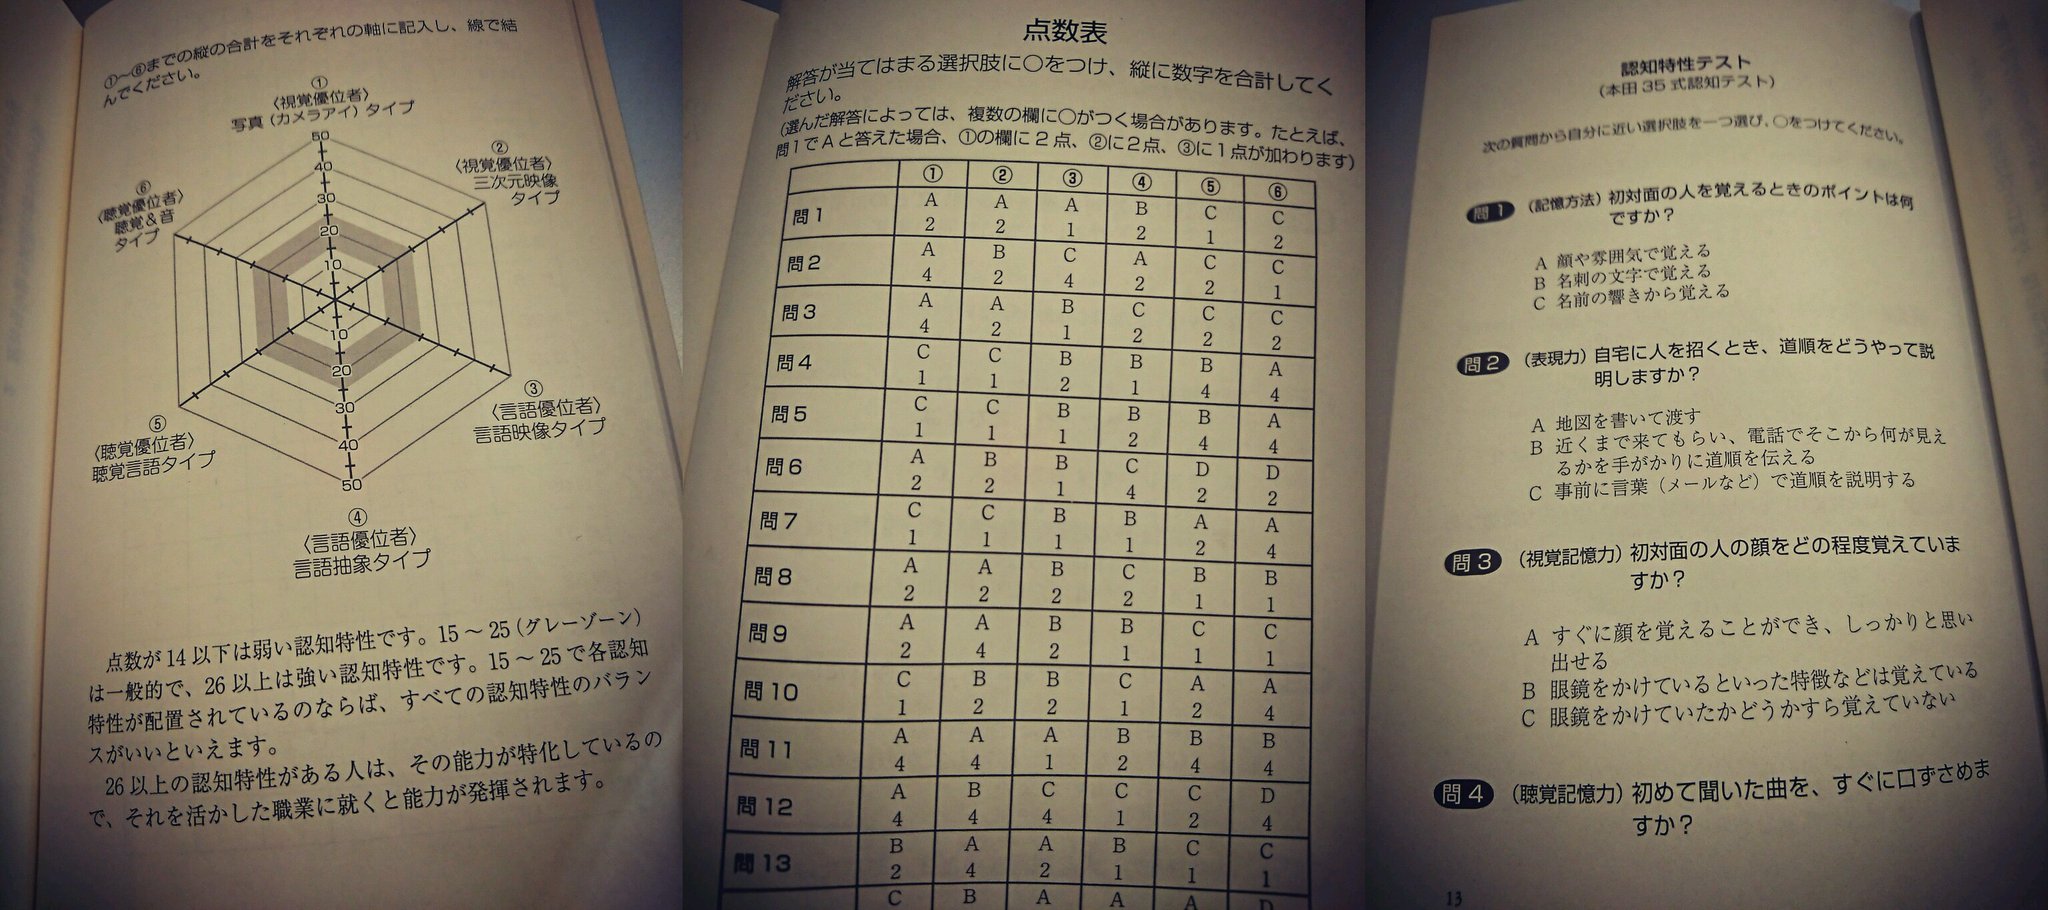 ①〜⑥までの縦の合計をそれぞれの軸に記入し、線で結
んでください。
①
〈視覚優位者〉
写真（カメラアイ）タイプ
②
〈視覚優位者〉
三次元映像
タイプ
③
〈言語優位者〉
言語映像タイプ
④
〈言語優位者〉
言語抽象タイプ
⑤
〈聴覚優位者〉
聴覚言語タイプ
⑥
〈聴覚優位者〉
聴覚＆音
タイプ
50
40
30
20
10
10
20
30
40
50
点数が14以下は弱い認知特性です。15〜25（グレーゾーン）
は一般的で、26以上は強い認知特性です。15〜25で各認知
特性が配置されているのならば、すべての認知特性のバラン
スがいいといえます。
26以上の認知特性がある人は、その能力が特化しているの
で、それを活かした職業に就くと能力が発揮されます。
点数表
解答が当てはまる選択肢に○をつけ、縦に数字を合計してく
ださい。
（選んだ解答によっては、複数の欄に○がつく場合があります。たとえば、
問1でAと答えた場合、①の欄に2点、②に2点、③に1点が加わります）
① ② ③ ④ ⑤ ⑥
問1 A A A B C C
2 2 1 2 1 2
問2 A B C A C C
4 2 4 2 2 1
問3 A A B C C C
4 2 1 2 2 2
問4 C C B B B A
1 1 2 1 4 4
問5 C C B B B A
1 1 1 2 4 4
問6 A B B C D D
2 2 1 4 2 2
問7 C C B B A A
1 1 1 1 2 4
問8 A A B C B B
2 2 2 2 1 1
問9 A A B B C C
2 4 2 1 1 1
問10 C B B C A A
1 2 2 1 2 4
問11 A A A B B B
4 4 1 2 4 4
問12 A B C C C D
4 4 4 1 2 4
問13 B A A B C C
2 4 2 1 1 1
C B A A A D
認知特性テスト
（本田35式認知テスト）
次の質問から自分に近い選択肢を一つ選び、○をつけてください。
問1 （記憶方法）初対面の人を覚えるときのポイントは何
ですか？
A 顔や雰囲気で覚える
B 名刺の文字で覚える
C 名前の響きから覚える
問2 （表現力）自宅に人を招くとき、道順をどうやって説
明しますか？
A 地図を書いて渡す
B 近くまで来てもらい、電話でそこから何が見え
るかを手がかりに道順を伝える
C 事前に言葉（メールなど）で道順を説明する
問3 （視覚記憶力）初対面の人の顔をどの程度覚えていま
すか？
A すぐに顔を覚えることができ、しっかりと思い
出せる
B 眼鏡をかけているといった特徴などは覚えている
C 眼鏡をかけていたかどうかすら覚えていない
問4 （聴覚記憶力）初めて聞いた曲を、すぐに口ずさめま
すか？
13